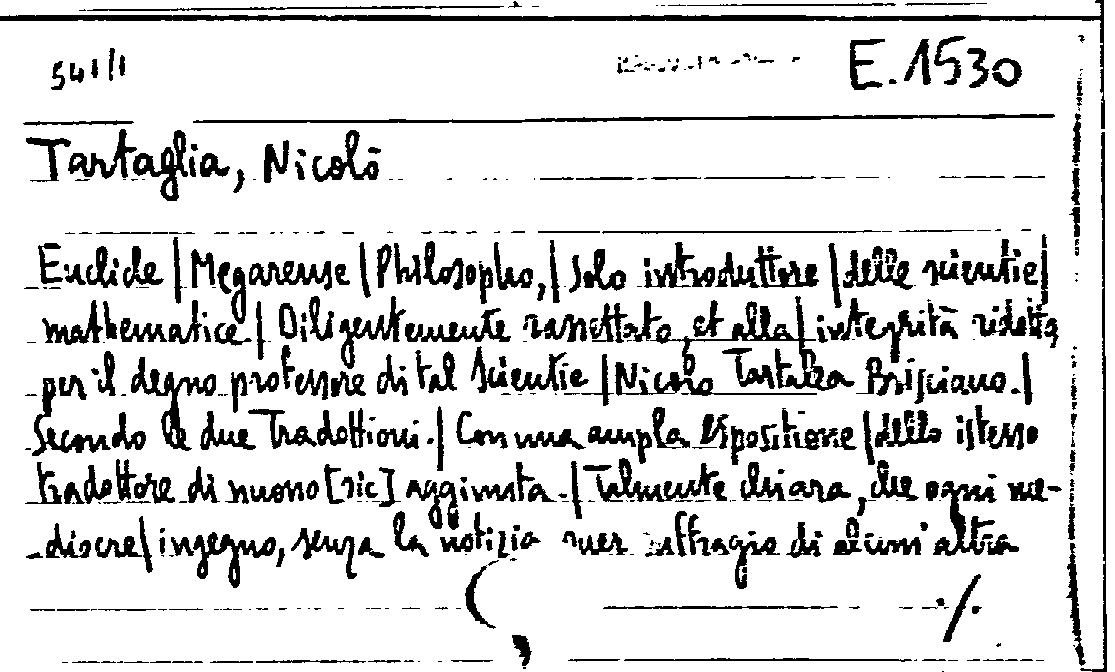 541/1 E.1530
Tartaglia, Nicolò
Euclide | Megarense | Philosopho, | Solo introduttore | delle scientie |
mathematice. | Diligentemente rassettato, et alla | integrità ridotto,
per il degno professore di tal Scientie | Nicolo Tartalea Brisciano. |
Secondo le due Tradottioni. | Con una ampla espositione | dello istesso
tradottore di nuono [sic] aggiunta. | Talmente chiara, che ogni me-
diocre | ingegno, senza la notizia over suffragio di alcun' altra
./.